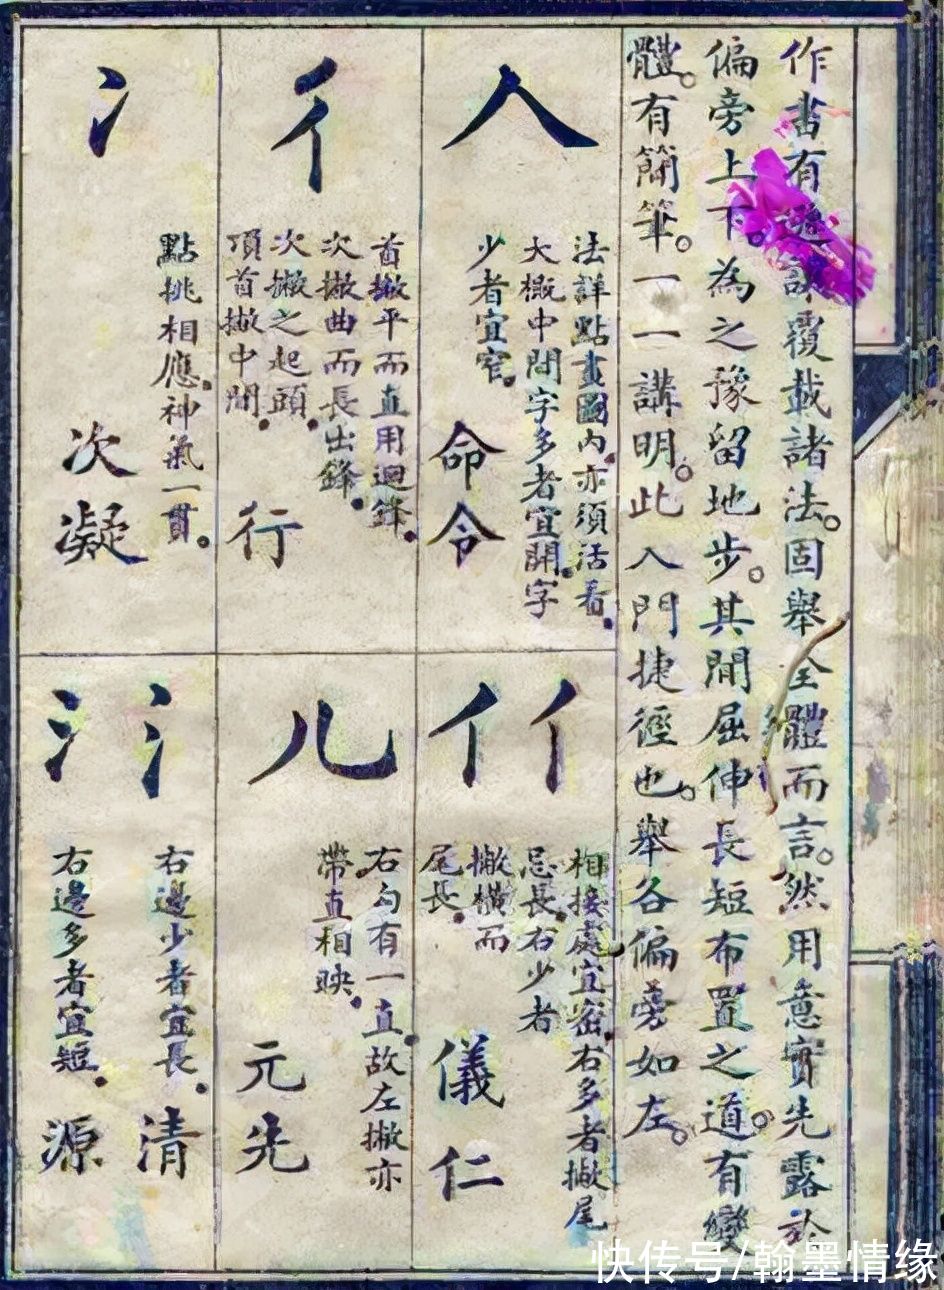 作書有覆載諸法。固舉全體而言。然用意實先露於
偏旁上下。為之豫留地步。其間屈伸長短布置之道。有變
體。有簡筆。一一講明。此入門捷徑也。舉各偏旁如左。
人
法詳點畫圖內亦須活看。
大概中間字多者宜開。字
少者宜窄。
命令
彳
首撇平而直用迴鋒。
次撇曲而長出鋒。
次撇之起頭。
項首撇中間。
行
冫
點挑相應。神氣一貫。
次凝
亻亻
相接處宜密。右多者撇尾
忌長。右少者
撇橫而
尾長。
儀仁
儿
右勾有一直。故左撇亦
帶直相映。
元先
氵氵
右邊少者宜長。
清
右邊多者宜短。
源
快传号/翰墨情缘